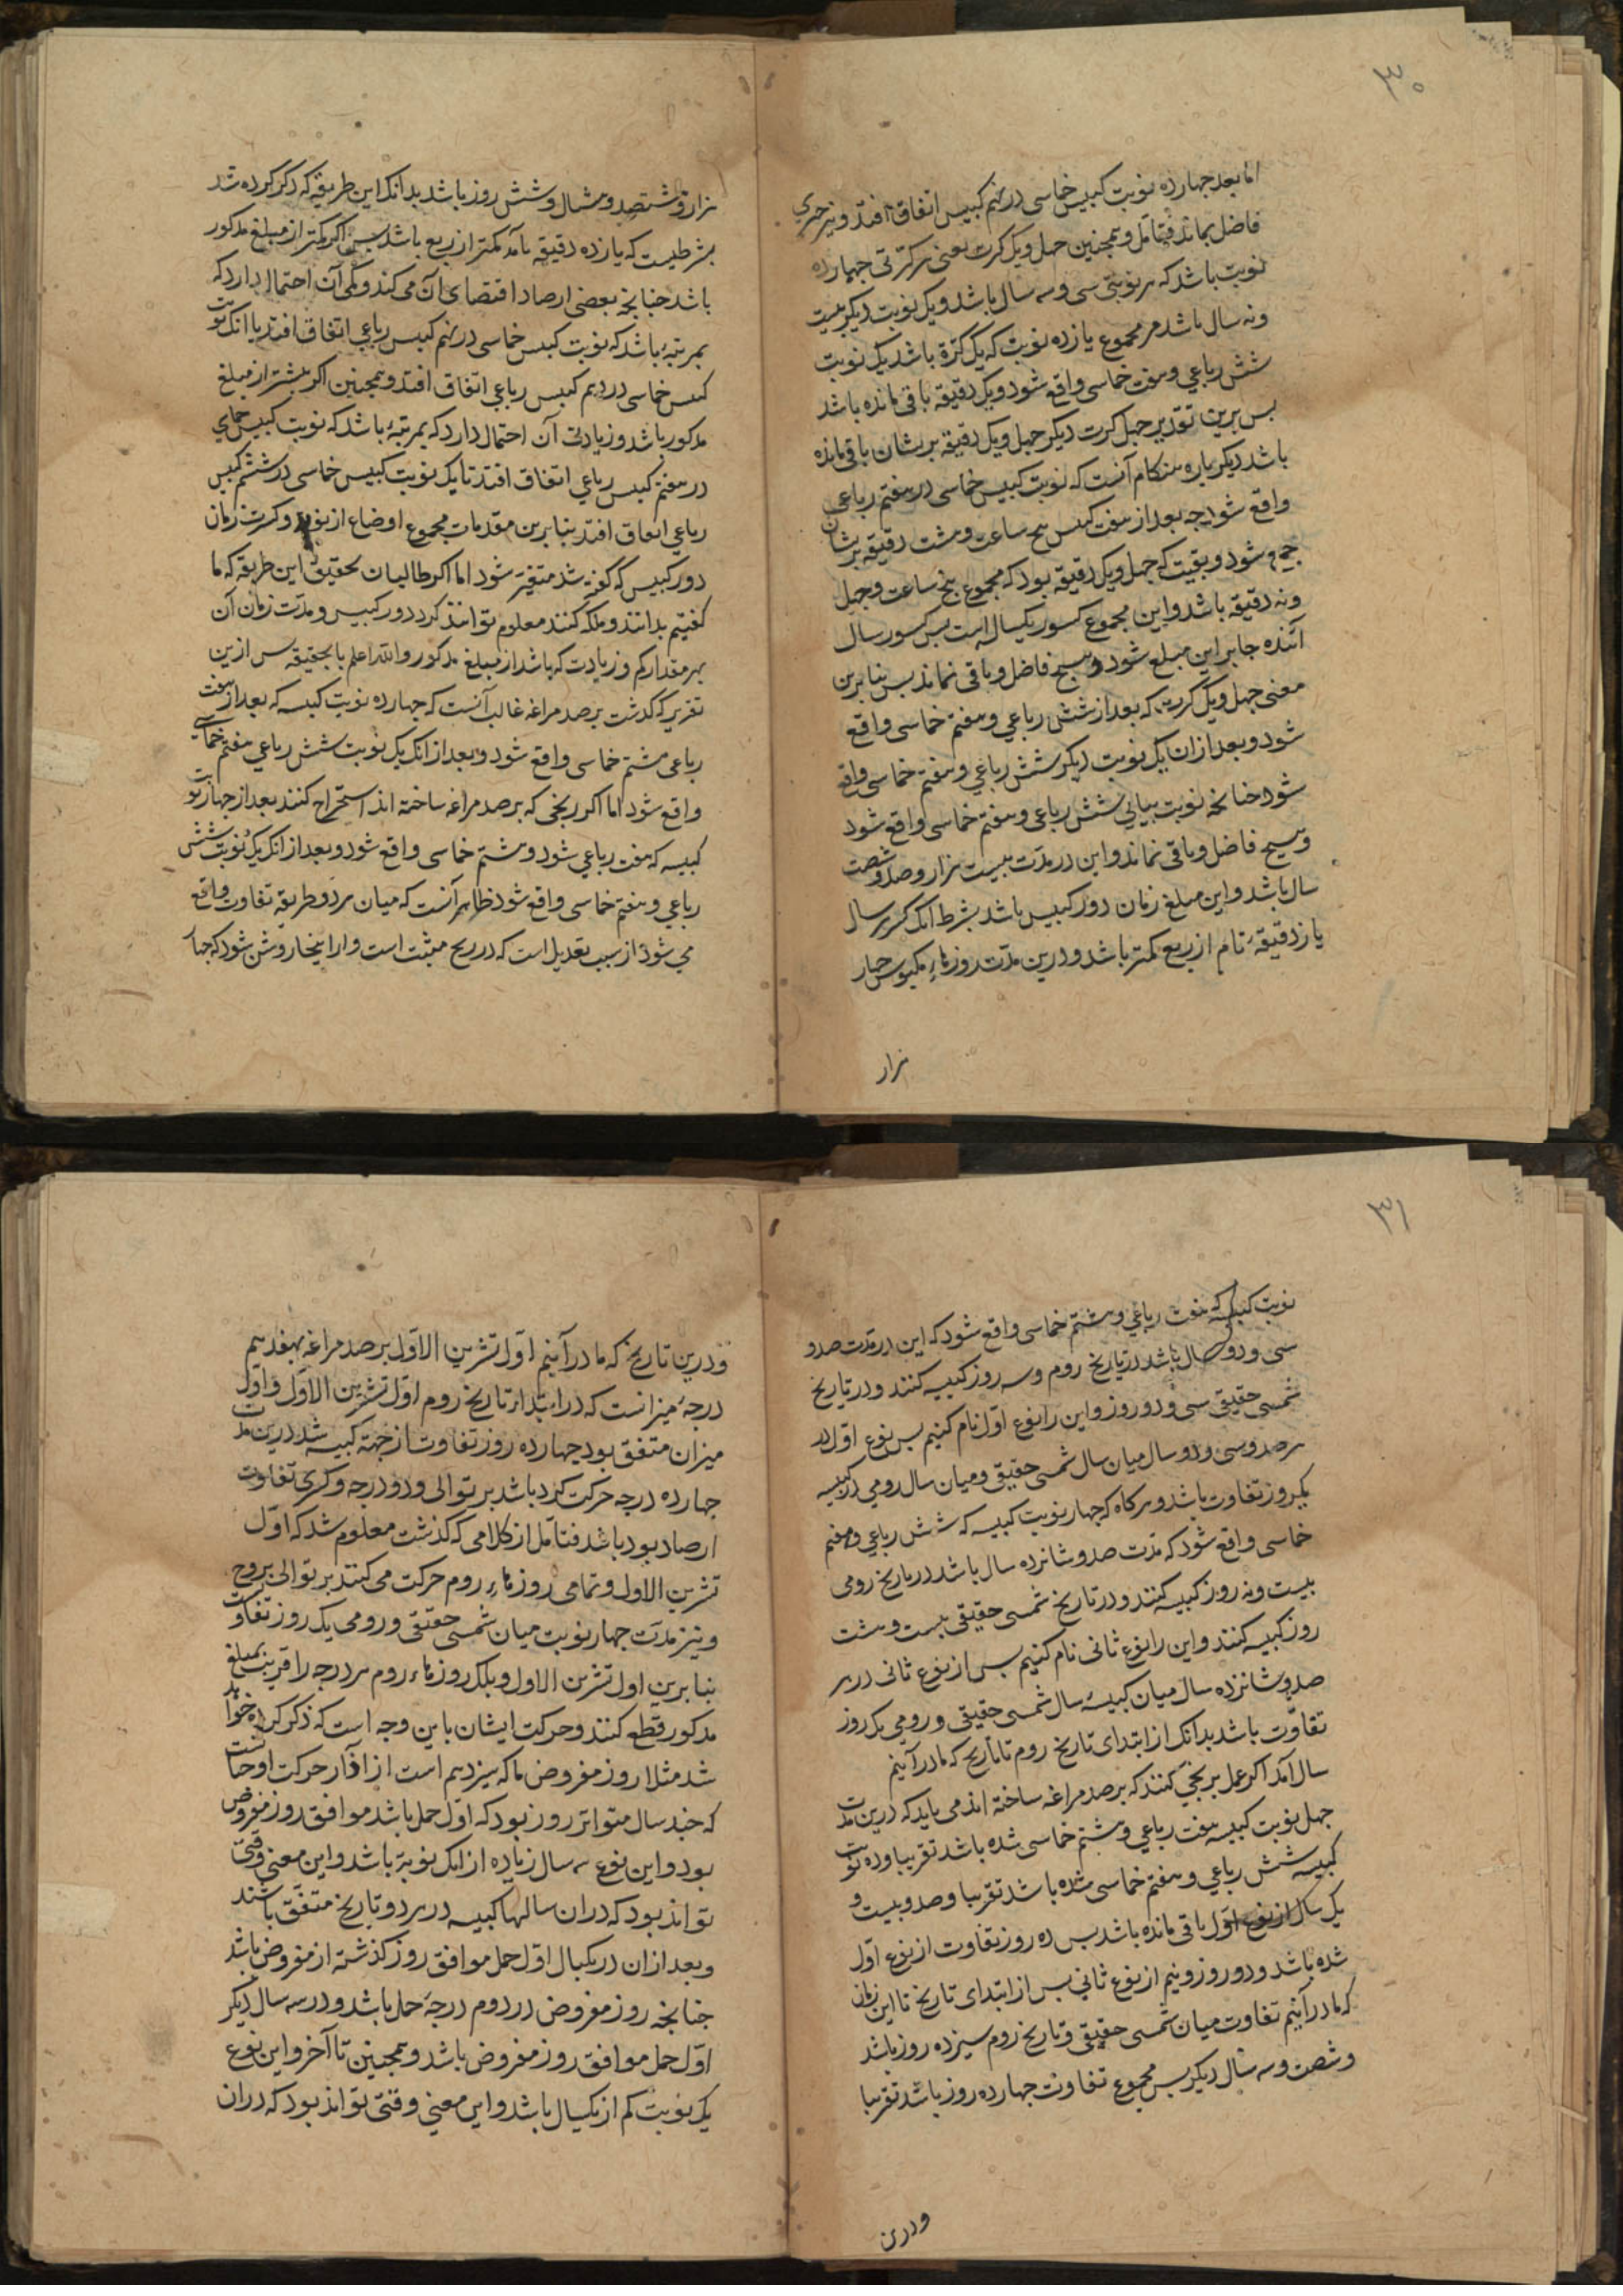 ۳۰
اما بعد چهارده نوبت کبیس خماسی در نهم کبیس اتفاق افتد و نیز جزوی
فاضل بماند فتامل و همچنین چهل و یک کرت یعنی هر کرتی چهارده
نوبت باشد که هر نوبتی سی و سه سال باشد و یک نوبت دیکر بیست
و نه سال باشد مر مجموع یازده نوبت که یک کرة باشد یک نوبت
شش رباعی و هفت خماسی واقع شود و یک دقیقه باقی مانده باشد
بس برین تقدیر چهل کرت دیکر چهل و یک دقیقه بریشان باقی مانده
باشد دیکر باره هنکام آنست که نوبت کبیس خماسی در هفتم رباعی
واقع شود چه بعد از هفت کبس پنج ساعت و هشت دقیقه بریشان
جمع شود و بقیت که چهل و یک دقیقه بود که مجموع پنج ساعت و چهل
و نه دقیقه باشد و این مجموع کسور یکسال است بس کسور سال
آینده جابر این مبلغ شود و هیچ فاضل و باقی نماند بس بنا برین
معنی چهل و یک کرت که بعد از شش رباعی و هفتم خماسی واقع
شود و بعد از آن یک نوبت دیکر شش رباعی و هفتم خماسی واقع
شود چنانچه نوبت بیاپی شش رباعی و هفتم خماسی واقع شود
و هیچ فاضل و باقی نماند و این در مدت بیست هزار و صد و شصت
سال باشد و این مبلغ زمان دور کبیس باشد بشرط آنک کسر هر سال
یازده دقیقهٔ تام از ربع کمتر باشد و درین مدت روزهاء مکبوس چهار
هزار
هزار و هشتصد و هشتاد و شش روز باشد بدانک این طریقه که ذکر کرده شد
بشرطیست که یازده دقیقه تامه کمتر از ربع باشد بس اکر کمتر از مبلغ مذکور
باشد چنانچه بعضی ارصاد اقتضای آن می کند و کمی آن احتمال دارد که
بمرتبهٔ باشد که نوبت کبس خماسی در نهم کبس رباعی اتفاق افتد یا آنک نوبت
کبس خماسی در دهم کبس رباعی اتفاق افتد و همچنین اکر بیشتر از مبلغ
مذکور باشد و زیادتی آن احتمال دارد که بمرتبهٔ باشد که نوبت کبیس خماسی
در هفتم کبس رباعی اتفاق افتد تا یک نوبت کبیس خماسی در ششم کبس
رباعی اتفاق افتد بنا برین مقدمات مجموع اوضاع از نوبت و کرت زمان
دور کبیس که کفته شد متغیّر شود اما اکر طالبان تحقیق این طریقه که ما
کفتیم بدانند و ملکه کنند معلوم توانند کرد دور کبیس و مدّت زمان آن
بهر مقدار کم و زیادت که باشد از مبلغ مذکور والله اعلم بالحقیقه بس ازین
تقریر که کذشت برصد مراغه غالب آنست که چهارده نوبت کبیسه که بعد از هفت
رباعی هشتم خماسی واقع شود و بعد از آنک یک نوبت شش رباعی هفتم خماسی
واقع شود اما اکر زیجی که برصد مراغه ساخته اند استخراج کنند بعد از چهار نوبت
کبیسه که هفت رباعی شود و هشتم خماسی واقع شود و بعد از آنک یک نوبت شش
رباعی و هفتم خماسی واقع شود ظاهر آنست که میان هر دو طریقه تفاوت واقع
می شود از سبب تعدیل است که در زیج مثبت است و از اینجا روشن شود که چهار
۳۱
نوبت کبیسه که هفت رباعی و هشتم خماسی واقع شود که این در مدت صد و
سی و دو سال باشد در تاریخ روم و سه روز کبیسه کنند و در تاریخ
شمسی حقیقی سی و دو روز و این را نوع اوّل نام کنیم بس نوع اوّل در
هر صد و سی و دو سال میان سال شمسی حقیقی و میان سال رومی در کبیسه
یکروز تفاوت باشد و هرکاه که چهار نوبت کبیسه که شش رباعی و هفتم
خماسی واقع شود که مدّت صد و شانزده سال باشد در تاریخ رومی
بیست و نه روز کبیسه کنند و در تاریخ شمسی حقیقی بیست و هشت
روز کبیسه کنند و این را نوع ثانی نام کنیم بس از نوع ثانی در هر
صد و شانزده سال میان کبیسهٔ سال شمسی حقیقی و رومی یک روز
تفاوت باشد بدانک از ابتدای تاریخ روم تا تاریخ که ما در آنیم
سال آمد اکر عمل بزیجی کنند که برصد مراغه ساخته اند می باید که درین مدّت
چهل نوبت کبیسه هفت رباعی و هشتم خماسی شده باشد تقریبا و ده نوبت
کبیسه شش رباعی و هفتم خماسی شده باشد تقریبا و صد و بیست و
یک سال از نوع اوّل باقی مانده باشد بس ده روز تفاوت از نوع اوّل
شده باشد و دو روز و نیم از نوع ثانی بس از ابتدای تاریخ تا این زمان
که ما در آنیم تفاوت میان شمسی حقیقی و تاریخ روم سیزده روز باشد
و شصت و سه سال دیکر بس مجموع تفاوت چهارده روز باشد تقریبا
و درین
و درین تاریخ که ما در آنیم اوّل تشرین الاوّل برصد مراغه بهفدهم
درجهٔ میزانست که در ابتداء تاریخ روم اوّل تشرین الاوّل و اوّل
میزان متفق بود چهارده روز تفاوت از جهة کبیسه شد درین مدّت
چهارده درجه حرکت کرده باشد بر توالی و دو درجه و کری تفاوت
ارصاد بوده باشد فتامّل از کلامی که کذشت معلوم شد که اوّل
تشرین الاول و تمامی روزهاء روم حرکت می کنند بر توالی بروج
و نیز مدّت چهار نوبت میان شمسی حقیقی و رومی یک روز تفاوتست
بنا برین اول تشرین الاول و بلک روزهاء روم هر درجه را قریب بمبلغ
مذکور قطع کنند و حرکت ایشان باین وجه است که ذکر کرده خواهد
شد مثلا روز مفروض ما که سیزدهم است از آذار حرکت او چنانست
که چند سال متواتر روز بود که اوّل حمل باشد موافق روز مفروض
بود و این نوع سه سال زیاده از یک نوبة باشد و این معنی وقتی
تواند بود که در ان سالها کبیسه در هر دو تاریخ متفق باشند
و بعد از ان در یکسال اوّل حمل موافق روز کذشته از مفروض باشد
چنانچه روز مفروض در دوم درجهٔ حمل باشد و در سه سال دیکر
اوّل حمل موافق روز مفروض باشد و همچنین تا آخر و این نوع
یک نوبت کم از یکسال باشد و این معنی وقتی تواند بود که در ان